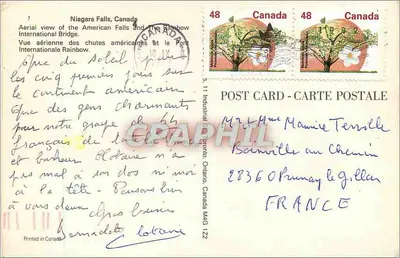 Niagara Falls, Canada
Aerial view of the American Falls and The Rainbow
International Bridge.
Vue aérienne des chutes américaines et le
Internationale Rainbow.
Que du soleil pour
les cinq premiers jours sur
le continent américain
Que des gens charmants
pour notre groupe de 44
français de
et bonheur Lotaire n'a
pas mal à son dos ni moi
à la tête - Pensons bien
à vous deux
Gros baisers
Bernadette Lotaire
Printed in Canada
CANADA
48 Canada
48 Canada
POST CARD - CARTE POSTALE
M. et Mme Maurice
en
28360 Prunay le Gillon
FRANCE
11 Industrial Toronto, Ontario, Canada M4G 1Z2
CPARAMA.COM